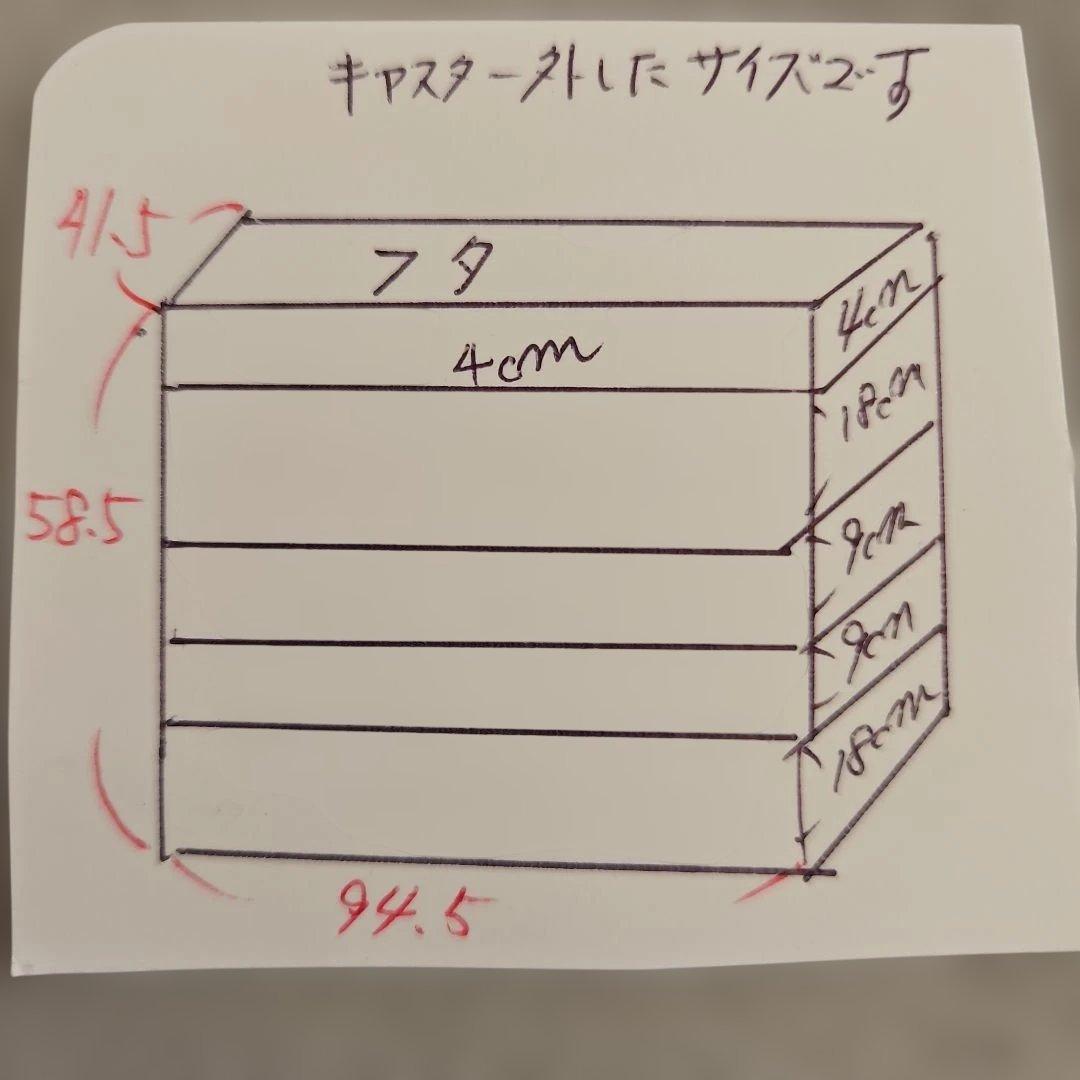 キャスター外したサイズです
41.5
フタ
4cm
4cm
18cm
58.5
9cm
9cm
18cm
94.5